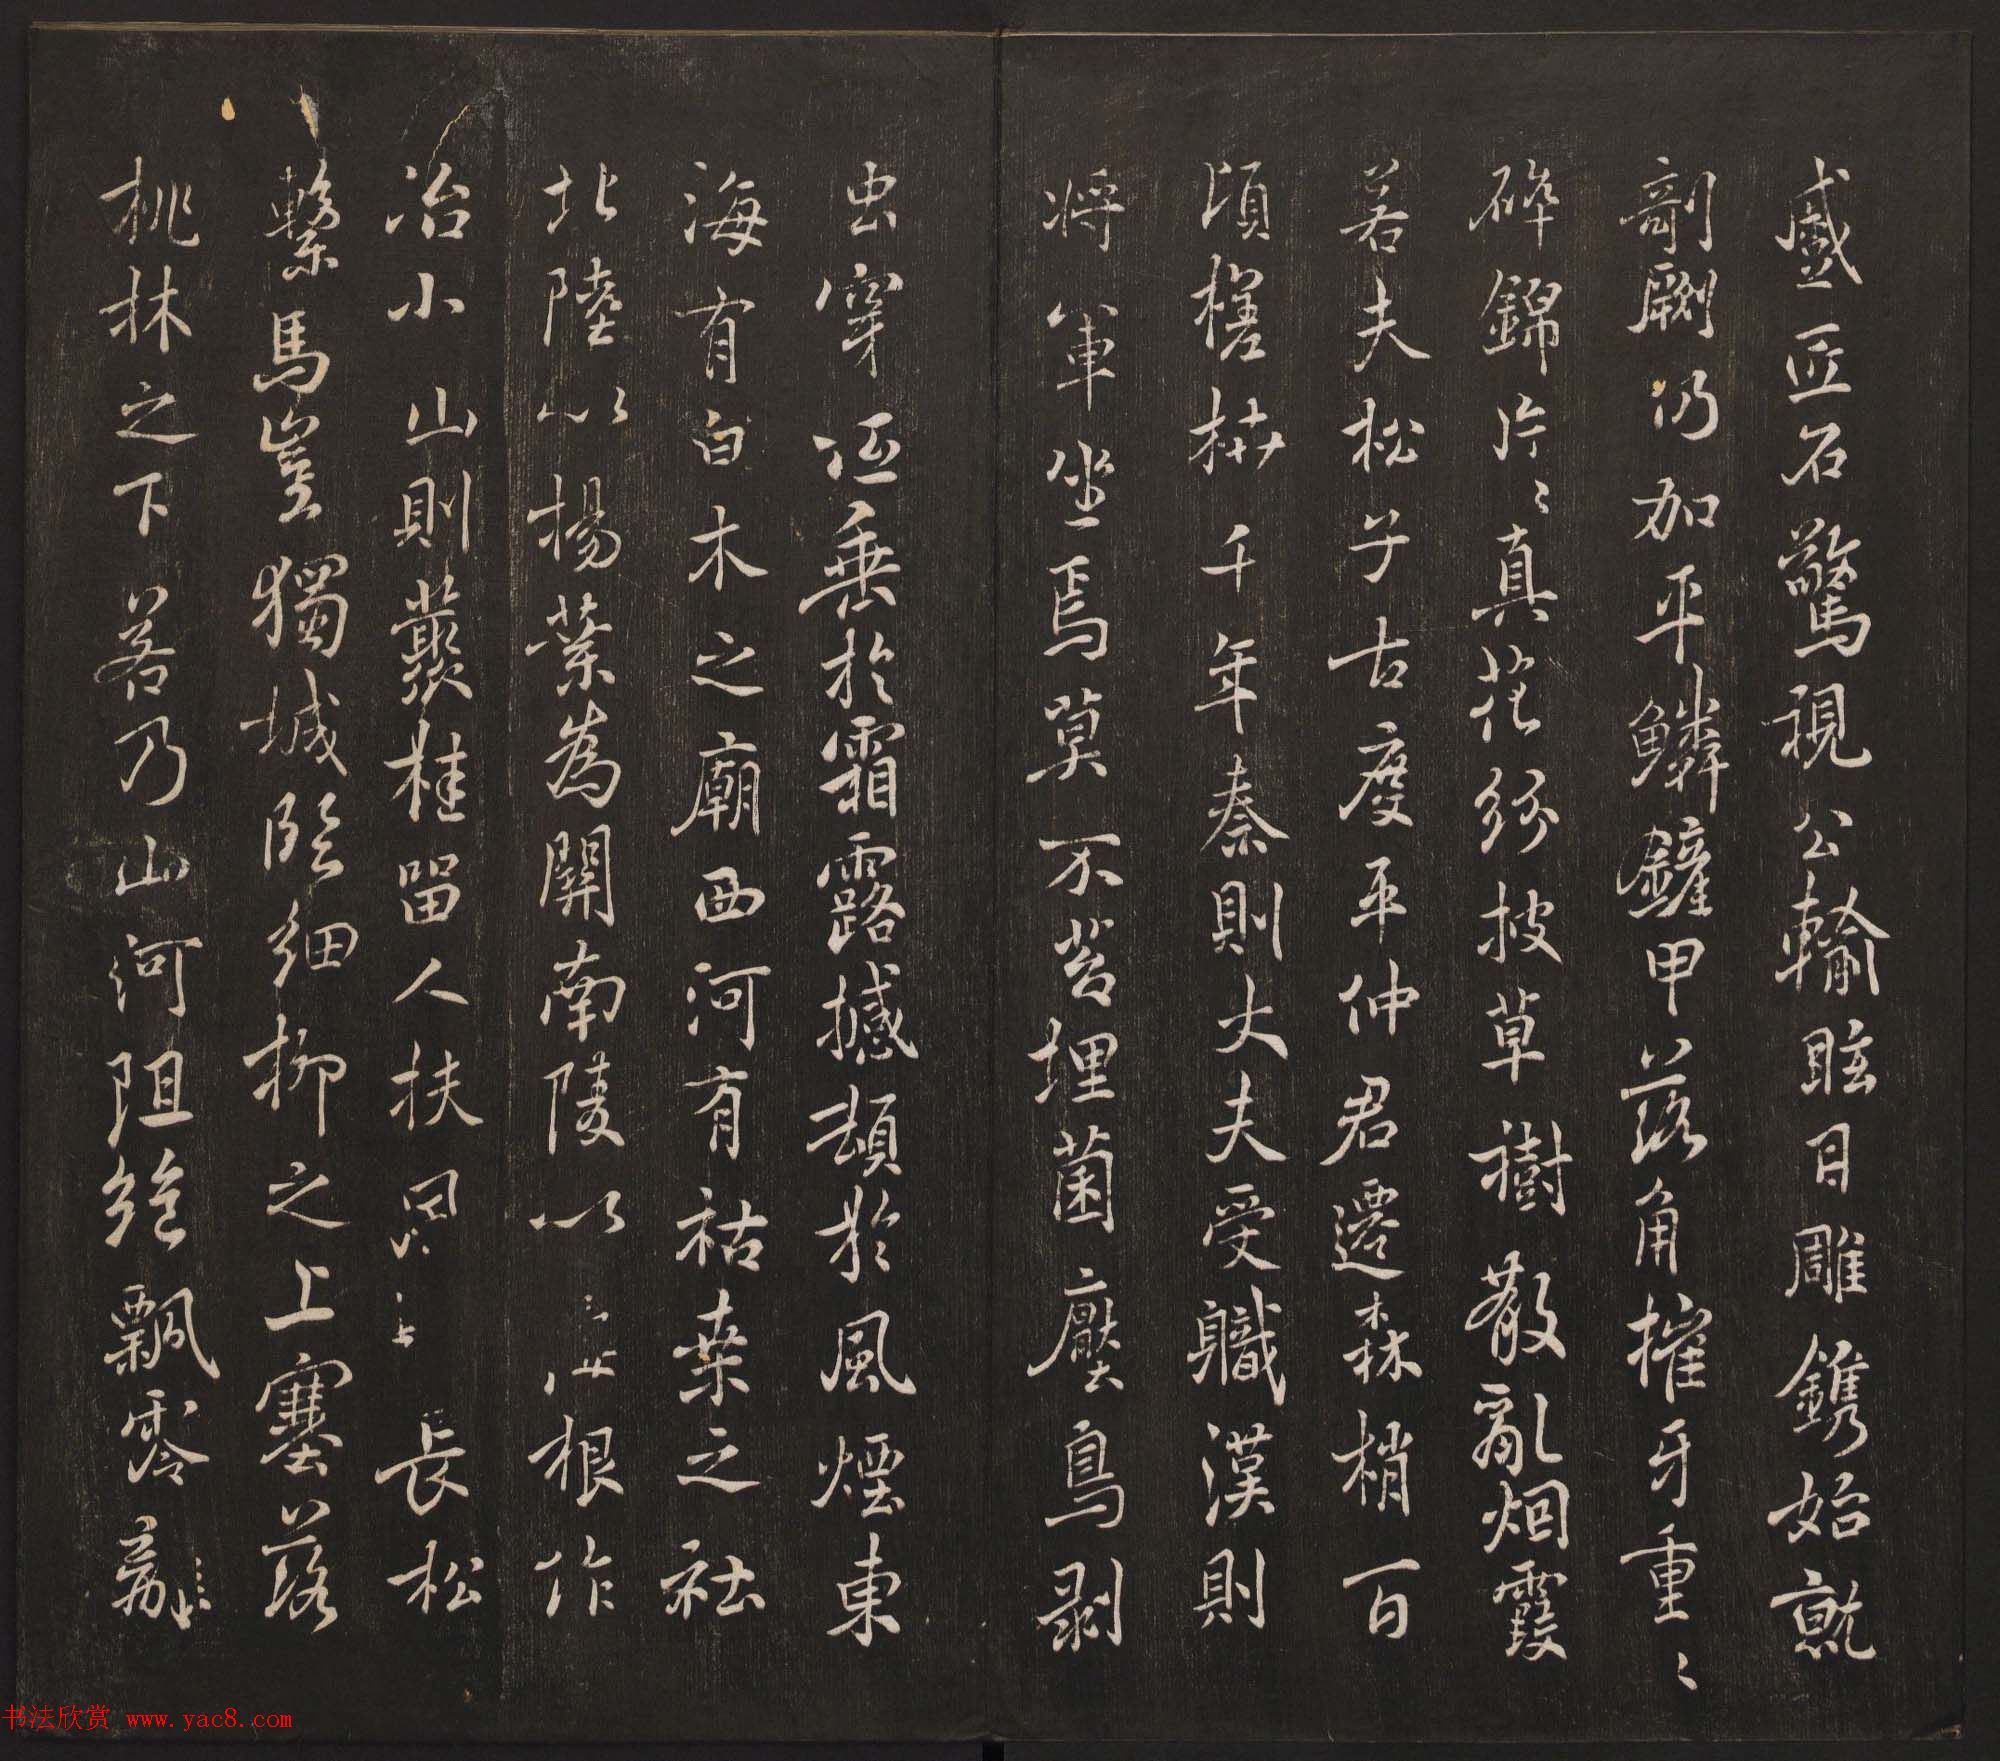 蹙匠石驚視公輸眩目雕鐫始就
剞劂仍加平鱗鏟甲落角摧牙重〻
碎錦片〻真花紛披草樹散亂烟霞
若夫松子古度平仲君遷森梢百
頃槎枿千年秦則大夫受職漢則
將軍坐焉莫不苔埋菌壓鳥剥
虫穿低垂於霜露撼頓於風煙東
海有白木之廟西河有枯桑之社
北陸以楊葉為關南陵以根作
冶小山則叢桂留人扶長松
繫馬豈獨城臨細柳之上塞落
桃林之下若乃山河阻絕飄零離
书法欣赏 www.yac8.com